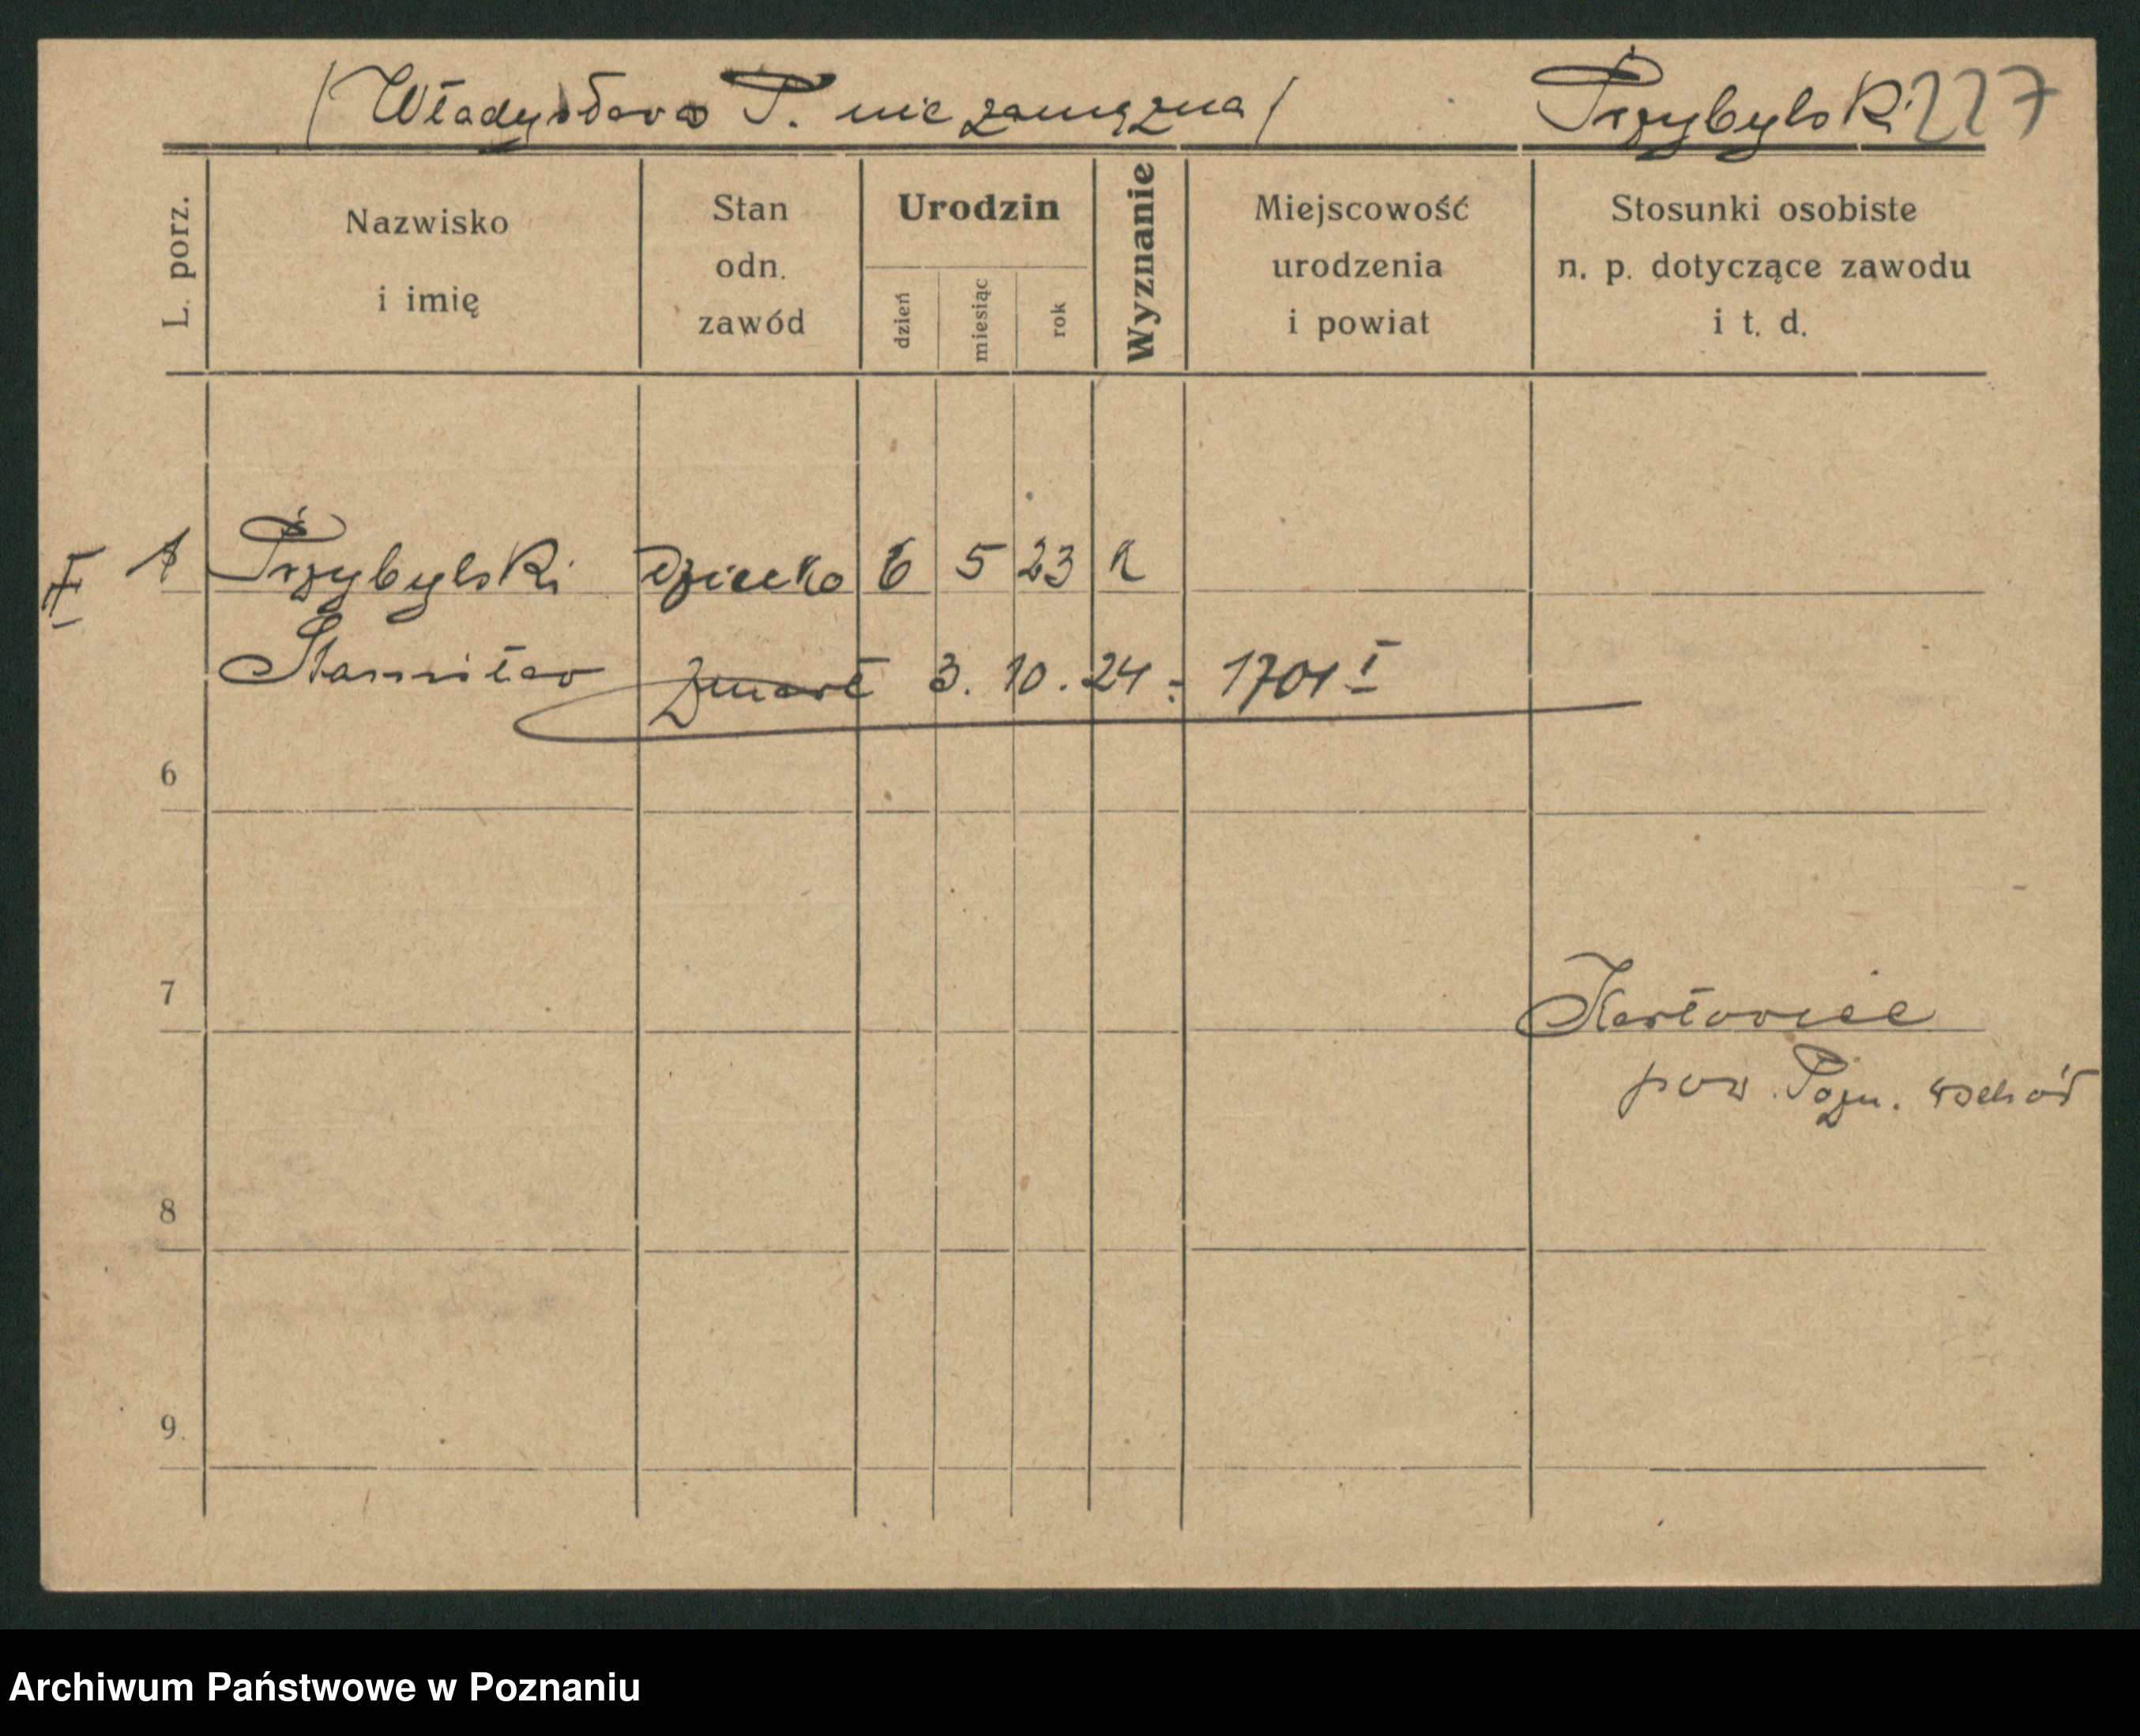 (Władysława P. niezamężna) Przybylski 227
L. porz.
Nazwisko i imię
Stan odn. zawód
Urodzin
dzień
miesiąc
rok
Wyznanie
Miejscowość urodzenia i powiat
Stosunki osobiste n. p. dotyczące zawodu i t. d.
Przybylski dziecko 6 5 23 k
Stanisław zmarł 3. 10. 24 = 1701 I
6
7
Karłowice
pow. Pozn. wschód
8
9.
Archiwum Państwowe w Poznaniu